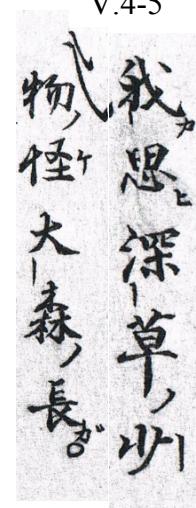 V.4-5
我カ思ヒ深ー草ノ少ー
物ノ怪ケ大ー森ノ長ガ